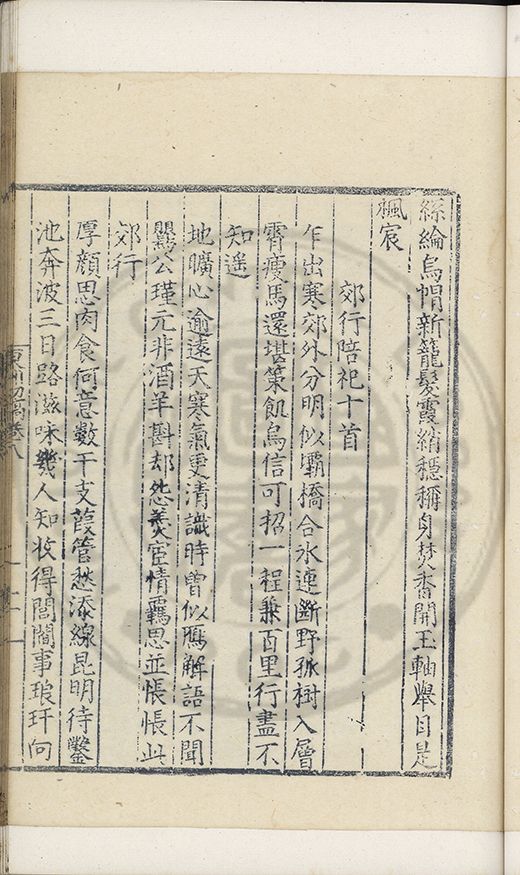 絲綸烏帽新籠髮霞綃穩稱身焚香開玉軸舉目是
楓宸
郊行陪祀十首
乍出寒郊外分明似霸橋合氷連斷野孤樹入層
霄瘦馬還堪策飢烏信可招一程兼百里行盡不
知遥
地曠心逾遠天寒氣更清識時曽似鴈解語不聞
公瑾元非酒羊斟却怨羮宦情羈思並悵悵此
郊行
厚顔思肉食何意數干支葭管愁添線昆明待鑿
池奔波三日路滋味幾人知收得閭閻事琅玕向